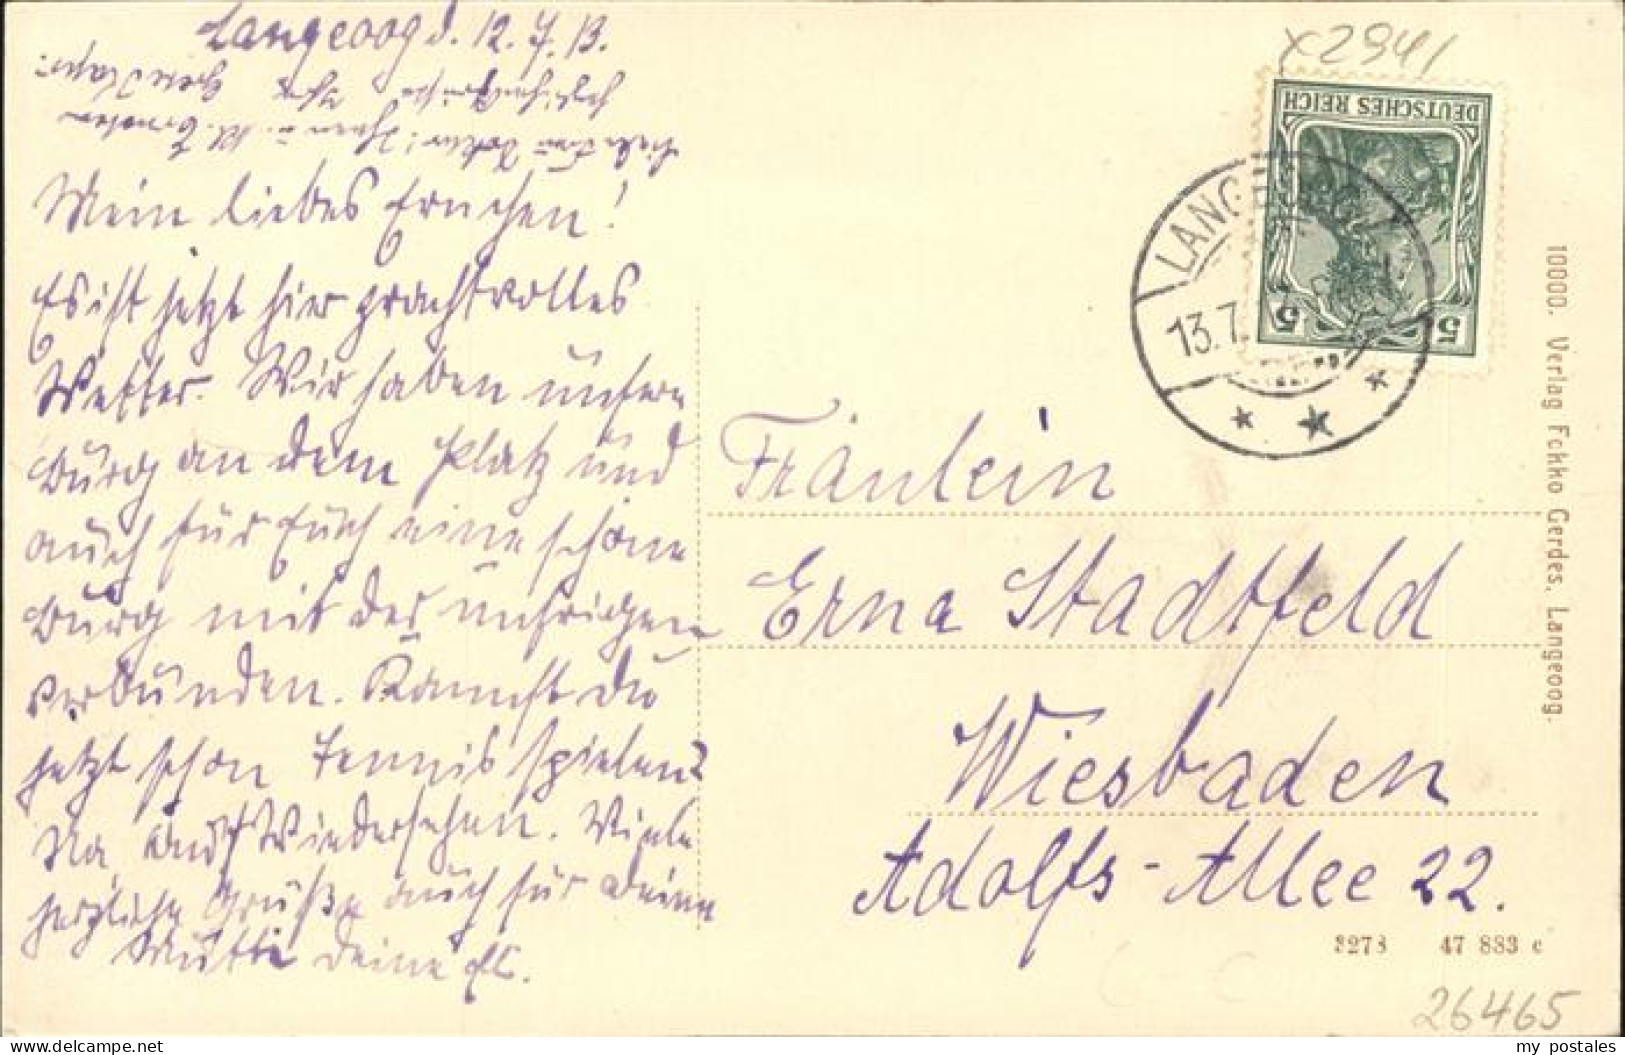 Langeoog d. 12.7.13.
Mein liebes Ernchen!
Es ist jetzt hier prachtvolles
Wetter. Wir haben unsere
Burg an dem Platz und
auch für Euch eine schöne
Burg mit der unsrigen
verbunden. Kannst du
jetzt schon Tennis spielen?
Na, auf Wiedersehen. Viele
herzliche Grüße auch für Deine
Mutti Deine
x2941
DEUTSCHES REICH
5 5
LANGEOOG
13.7.
Fräulein
Erna Stadtfeld
Wiesbaden
Adolfs-Allee 22.
10000. Verlag Fokko Gerdes, Langeoog.
3278 47 883 c
26465
my postales